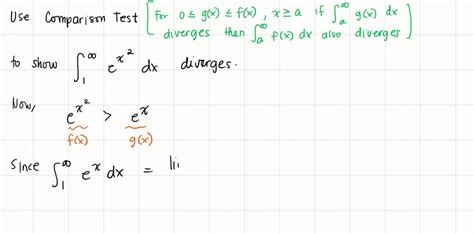 Use Comparison Test [For 0 ≤ g(x) ≤ f(x), x ≥ a if ∫ₐ^∞ g(x) dx
diverges then ∫ₐ^∞ f(x) dx also diverges]
to show ∫₁^∞ e^(x²) dx diverges.
Now, e^(x²) > e^x
f(x) g(x)
Since ∫₁^∞ e^x dx = li